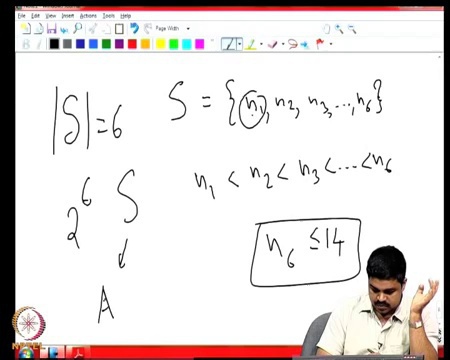 File Edit View Insert Actions Tools Help
Page Width
|S| = 6
S = {n₁, n₂, n₃, ..., n₆}
n₁ < n₂ < n₃ < ... < n₆
2⁶ S
n₆ ≤ 14
↓
A